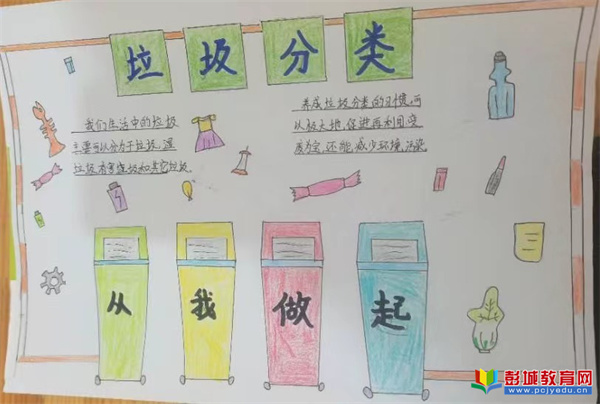 垃圾分类
我们生活中的垃圾
主要可以分为干垃圾,湿
垃圾有害垃圾和其它垃圾
养成垃圾分类的习惯,可
以极大地,促进再利用,变
废为宝,还能,减少环境,污染
从我做起
彭城教育网
www.pcjyedu.cn